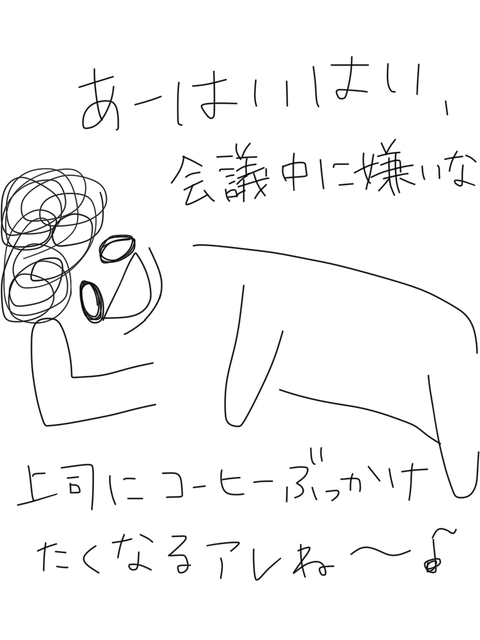 あーはいはい、
会議中に嫌いな
上司にコーヒーぶっかけ
たくなるアレね〜♪